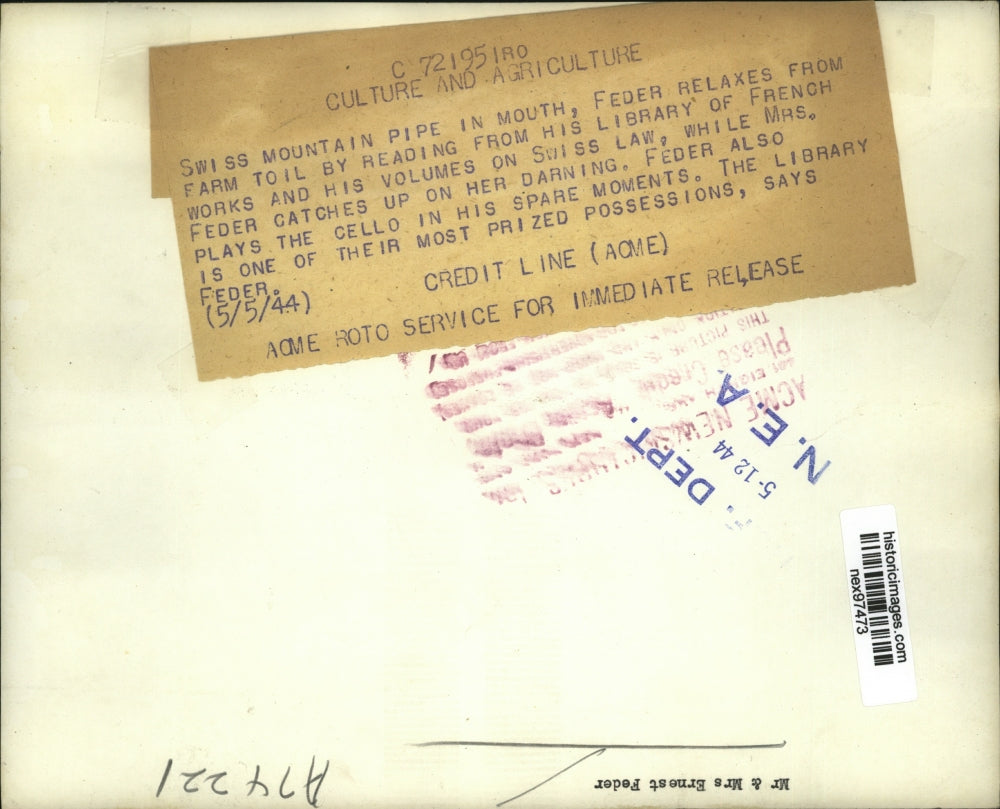 C 72195IRO
CULTURE AND AGRICULTURE
SWISS MOUNTAIN PIPE IN MOUTH, FEDER RELAXES FROM
FARM TOIL BY READING FROM HIS LIBRARY OF FRENCH
WORKS AND HIS VOLUMES ON SWISS LAW, WHILE MRS.
FEDER CATCHES UP ON HER DARNING. FEDER ALSO
PLAYS THE CELLO IN HIS SPARE MOMENTS. THE LIBRARY
IS ONE OF THEIR MOST PRIZED POSSESSIONS, SAYS
FEDER.
(5/5/44)
CREDIT LINE (ACME)
ACME ROTO SERVICE FOR IMMEDIATE RELEASE
THIS PICTURE IS
Please
ACME NEWS
N. E. A.
5-12 44
DEPT.
historicimages.com
nex97473
Mr & Mrs Ernest Feder
A74221